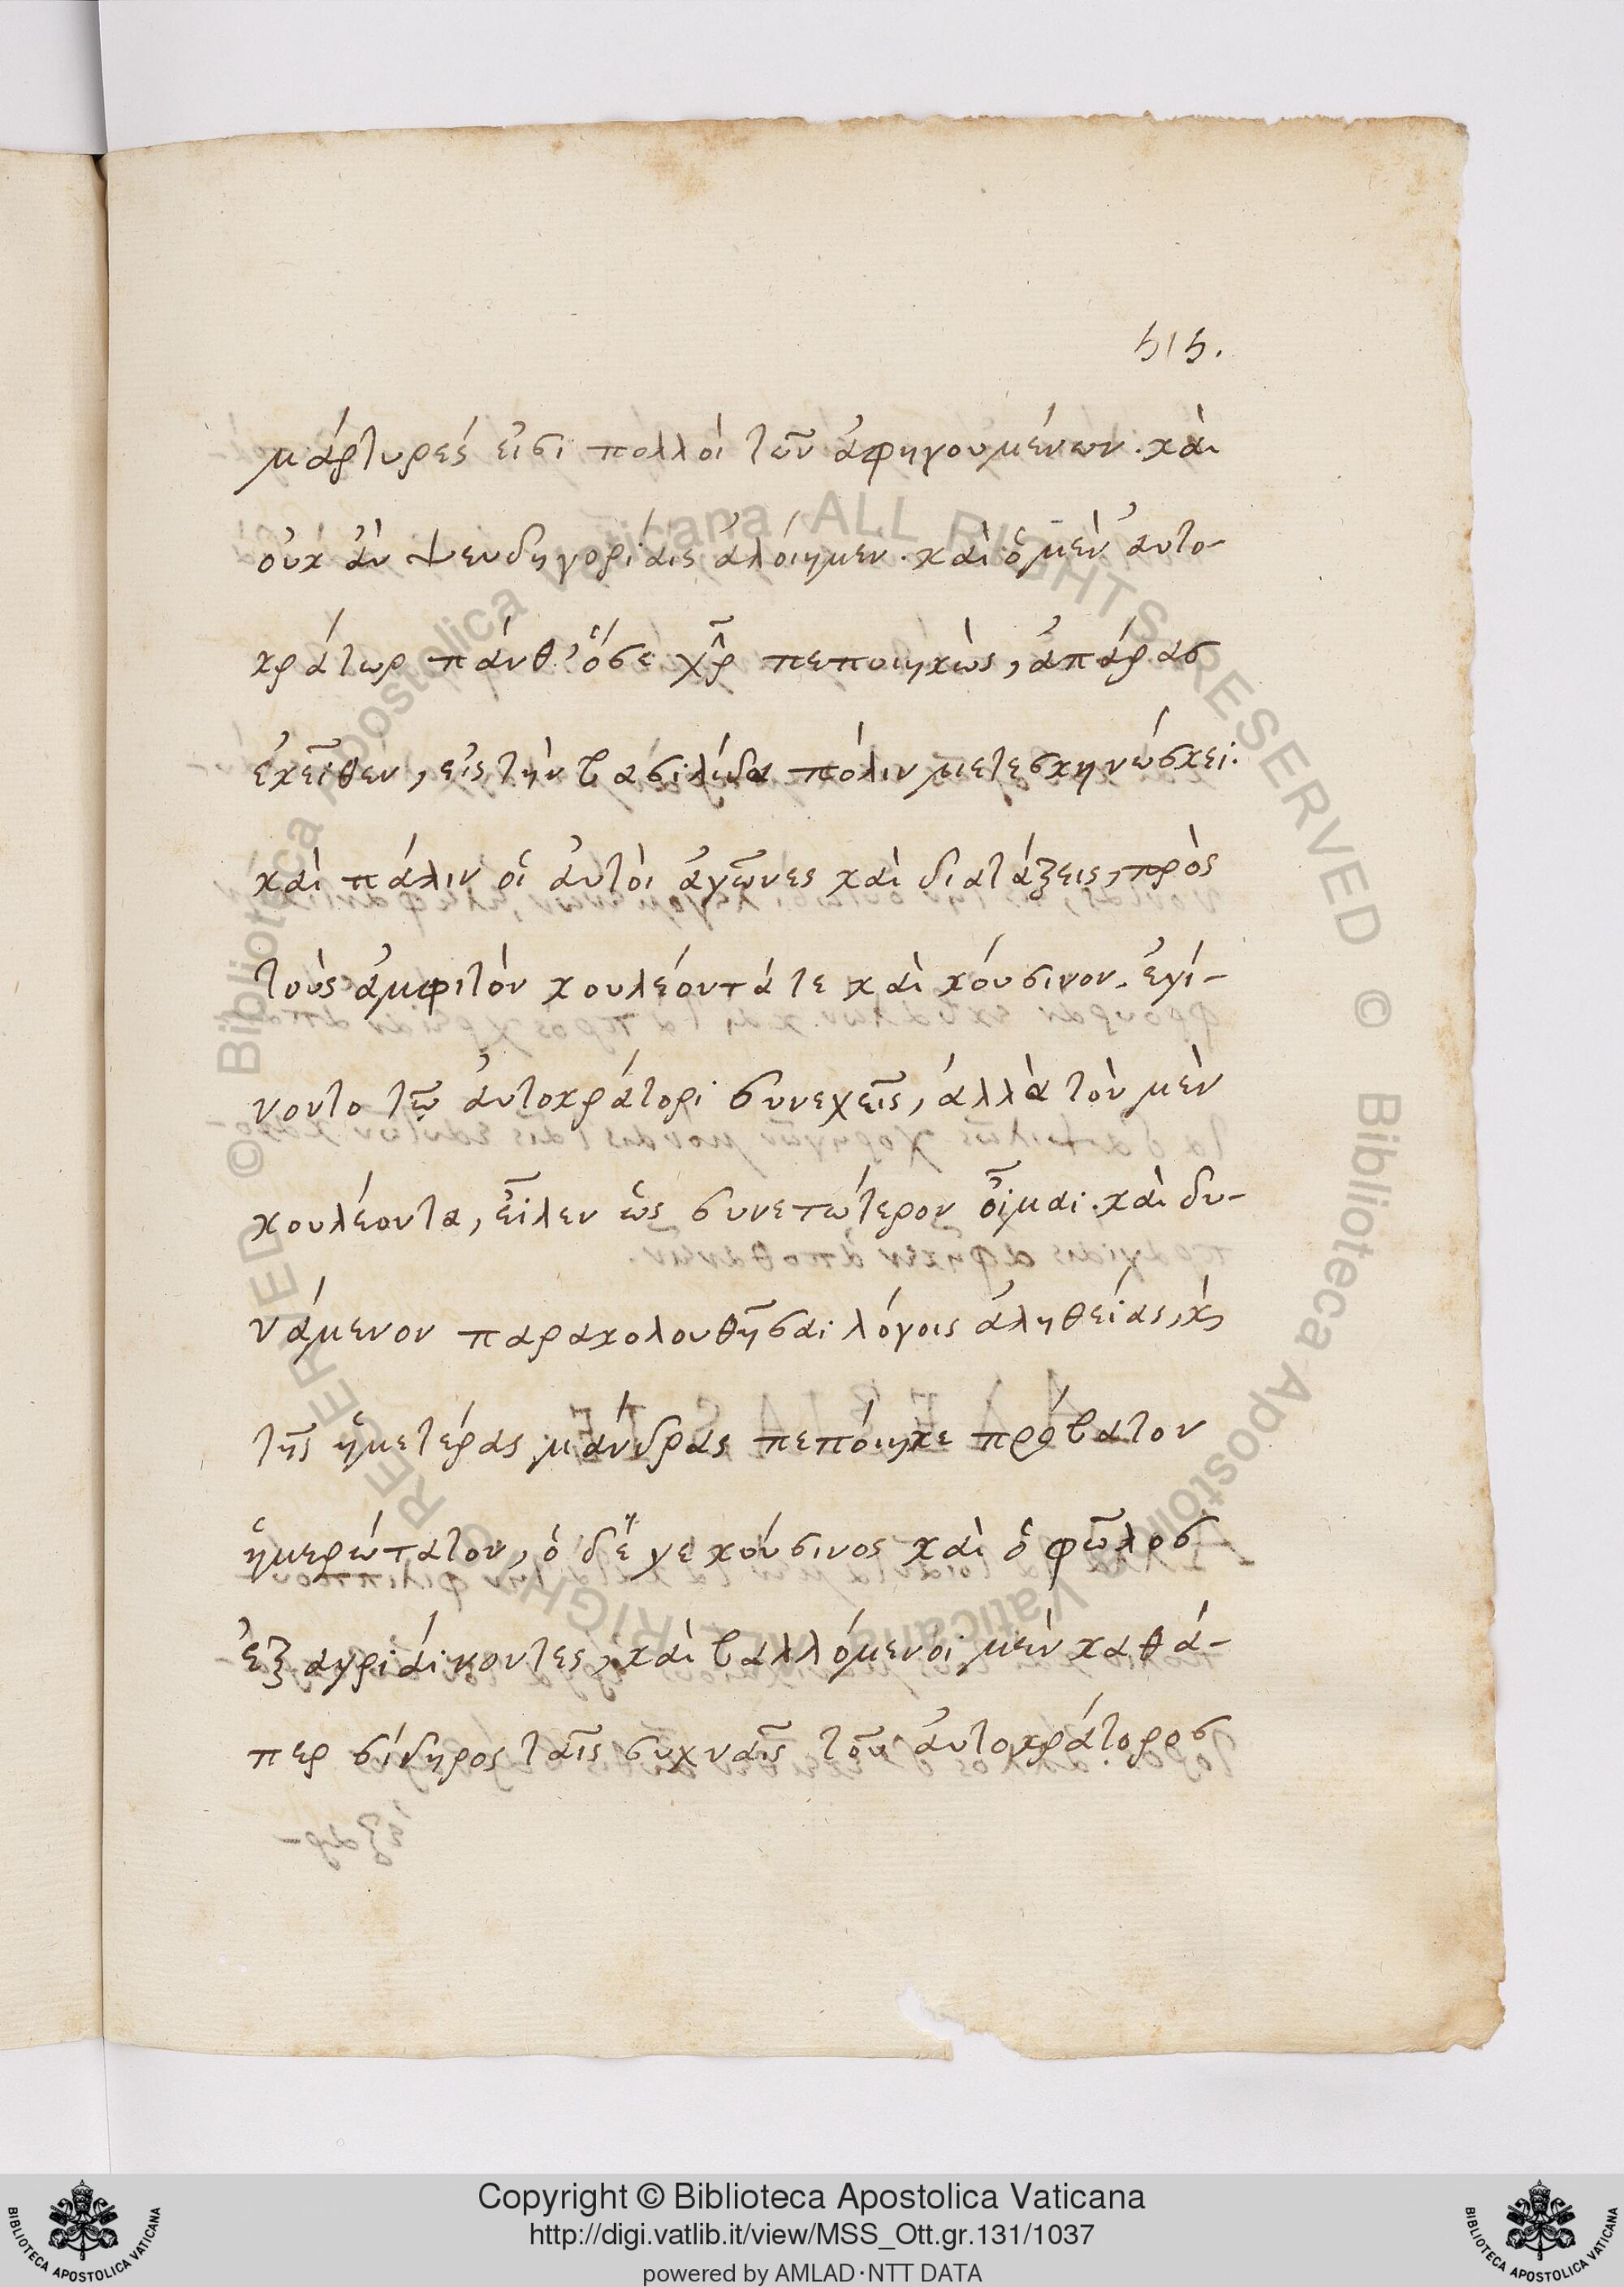 515.
μάρτυρές εἰσι πολλοὶ τῶν ἀφηγουμένων. καὶ
οὐκ ἂν ψευδηγορίαις ἁλοίημεν. καὶ ὁ μὲν αὐτο-
κράτωρ πάνθ' ὅσε χρ̑ πεποιηκὼς, ἀπάρας
ἐκεῖθεν, εἰς τὴν βασιλίδα πόλιν μετεσκηνώσκει.
καὶ πάλιν οἱ αὐτοὶ ἀγῶνες καὶ διατάξεις, πρὸς
τοὺς ἀμφιτὸν κουλέοντά τε καὶ κούσινον. ἐγί-
νοντο τῷ αὐτοκράτορι συνεχεῖς, ἀλλὰ τὸν μὲν
κουλέοντα, εἷλεν ὡς συνετώτερον οἶμαι. καὶ δυ-
νάμενον παρακολουθῆσαι λόγοις ἀληθείας, κ̀
τῆς ἡμετέρας μάνδρας πεπόιηκε πρόβατον
ἡμερώτατον, ὁ δέ γε κούσινος καὶ ὁ φῶλος
ἐξαγριάινοντες, καὶ βαλλόμενοι μὲν καθά-
περ σίδηρος ταῖς συχναῖς τοῦ αὐτοκράτορος
Copyright © Biblioteca Apostolica Vaticana
http://digi.vatlib.it/view/MSS_Ott.gr.131/1037
powered by AMLAD·NTT DATA
BIBLIOTECA APOSTOLICA VATICANA
BIBLIOTECA APOSTOLICA VATICANA
© Biblioteca Apostolica Vaticana ALL RIGHTS RESERVED © Biblioteca Apostolica Vaticana ALL RIGHTS RESERVED